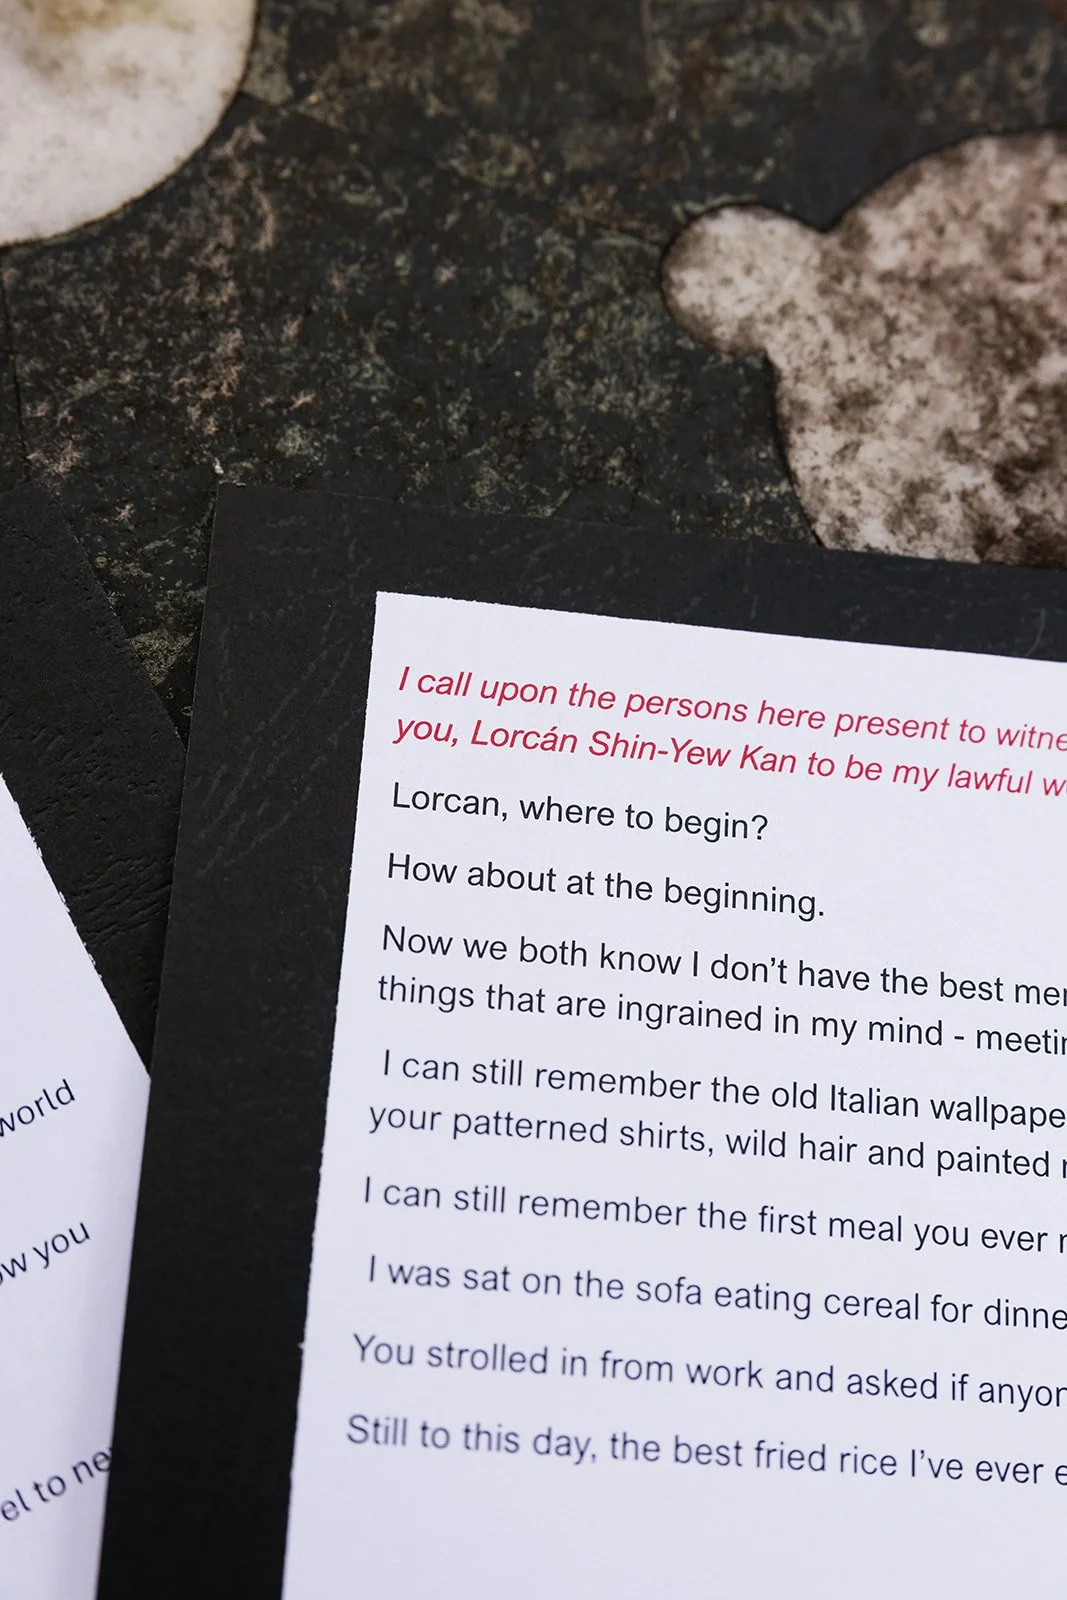 I call upon the persons here present to
you, Lorcán Shin-Yew Kan to be my lawful
Lorcan, where to begin?
How about at the beginning.
Now we both know I don't have the best
things that are ingrained in my mind -
I can still remember the old Italian
your patterned shirts, wild hair and painted
I can still remember the first meal you ever
I was sat on the sofa eating cereal for
You strolled in from work and asked if
Still to this day, the best fried rice I've ever
world
you
to